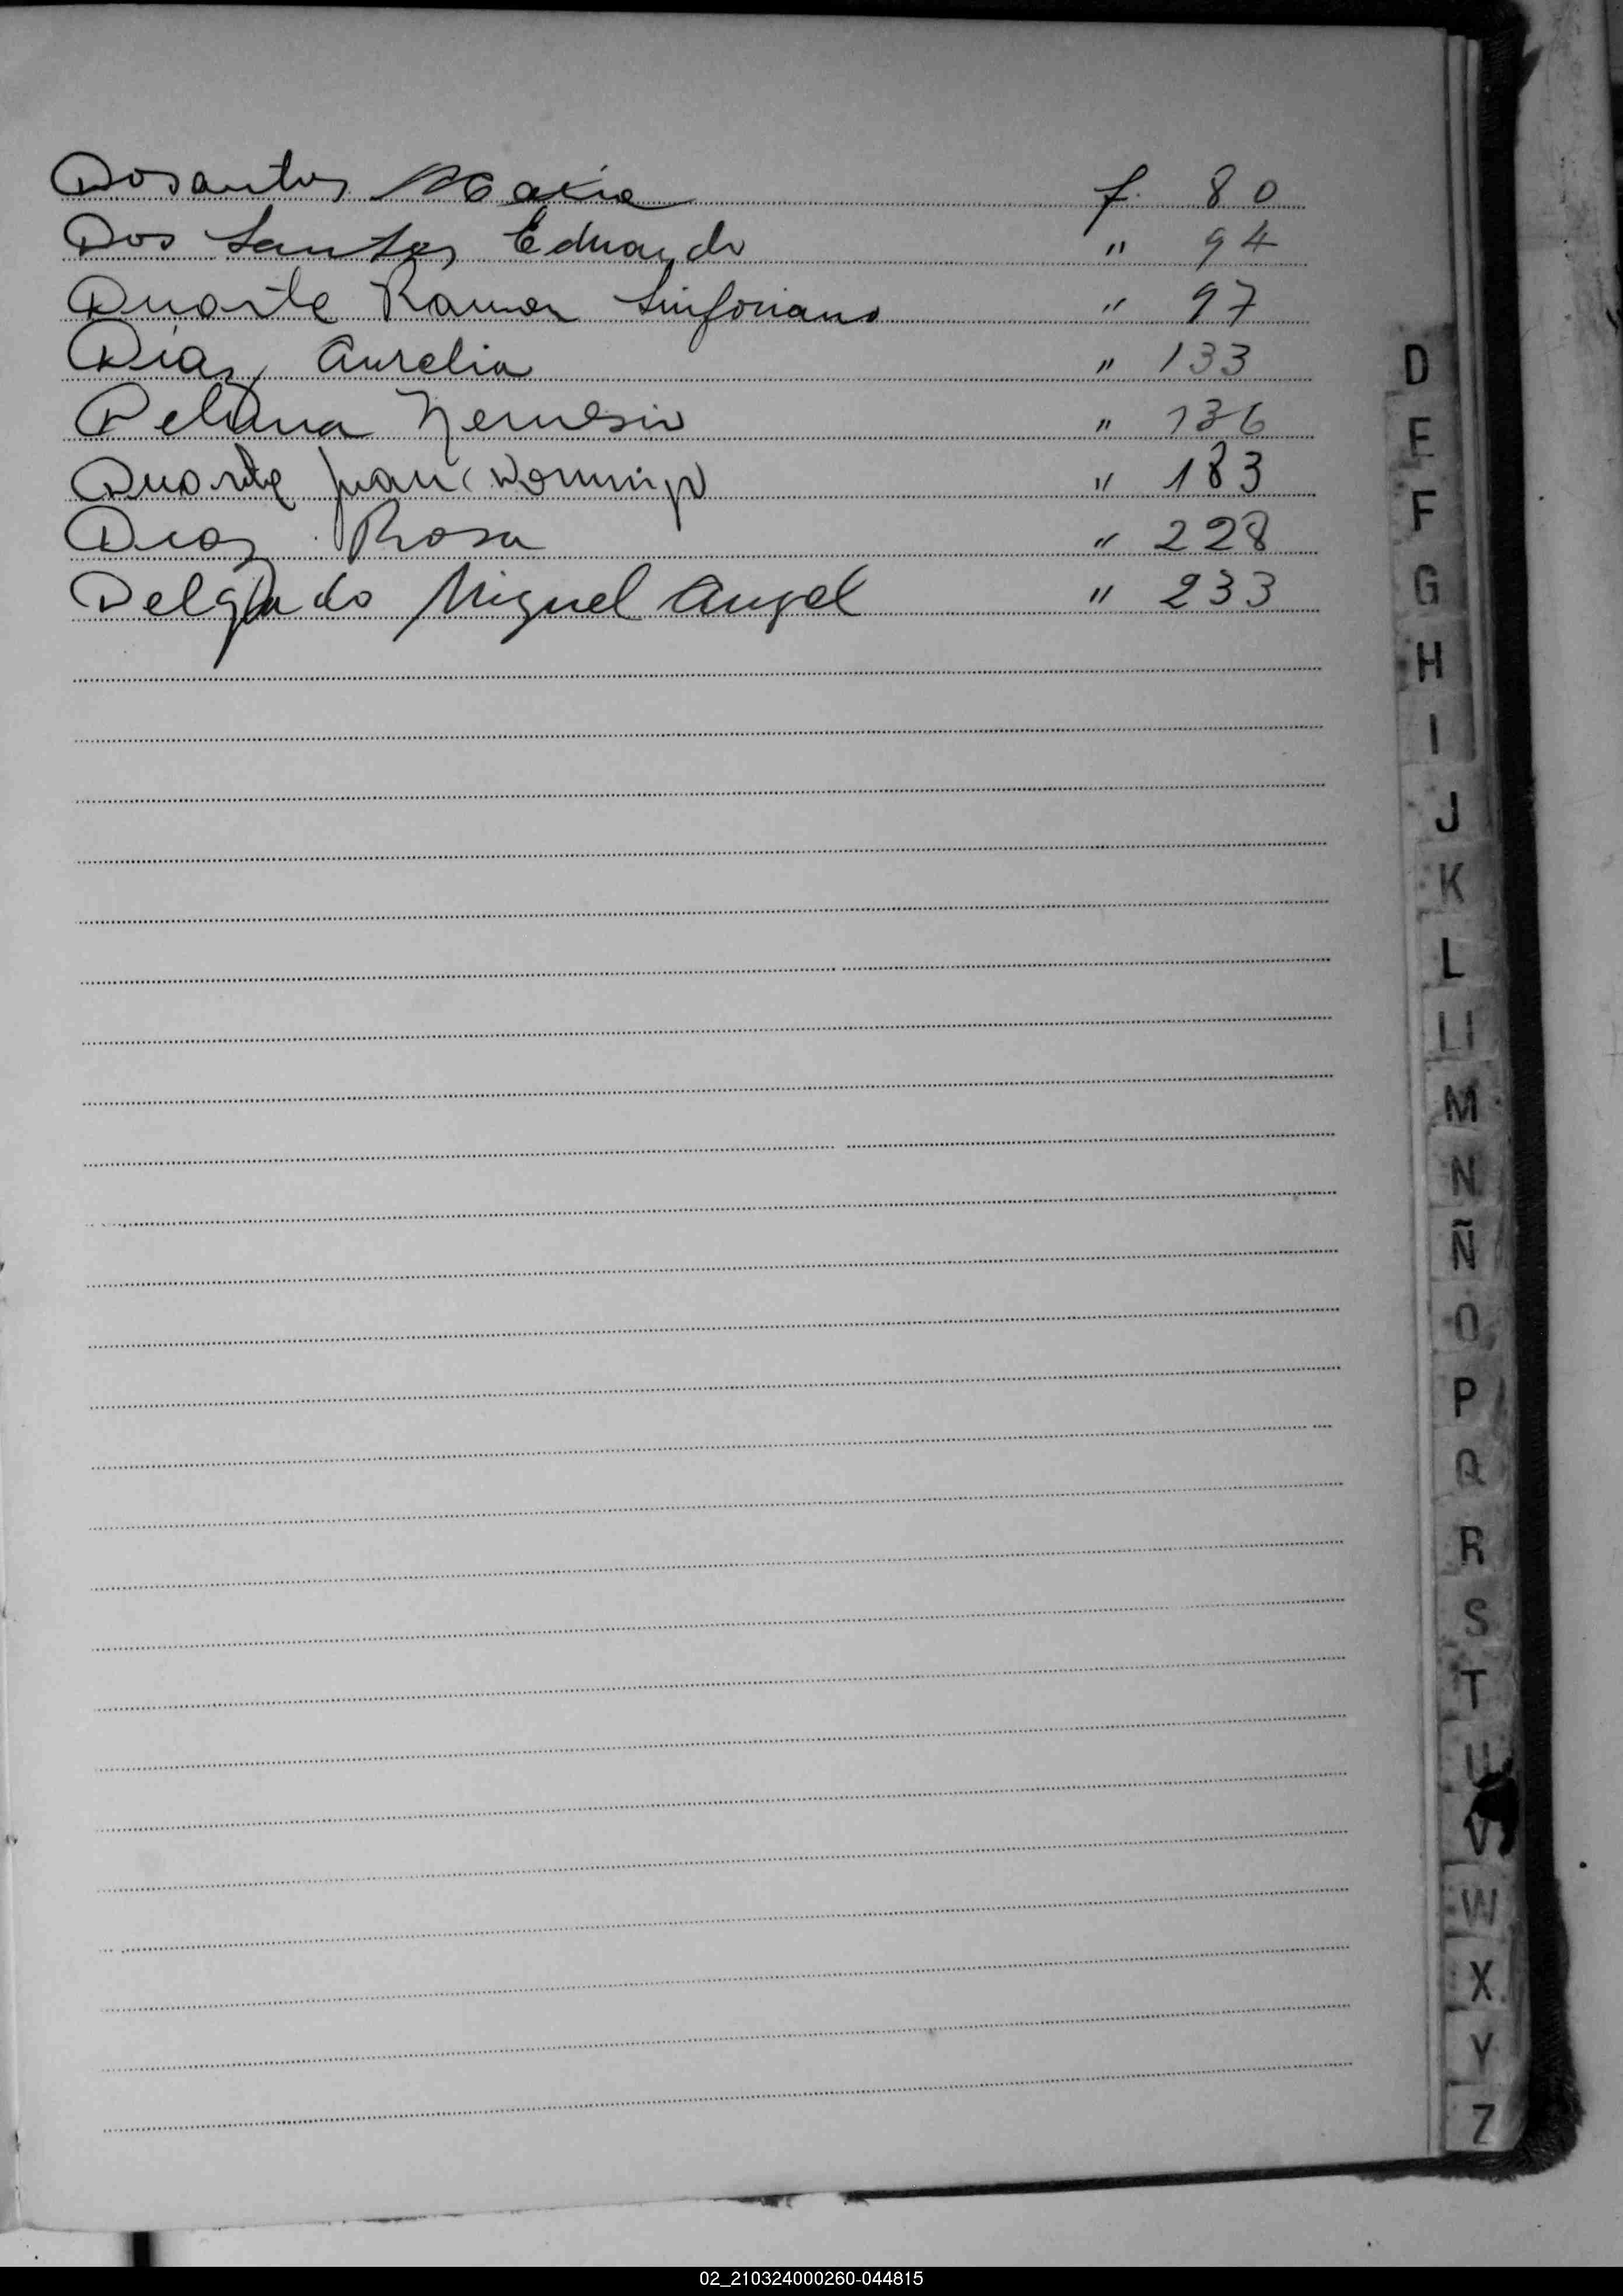 Dosantos Maria f. 80
Dos Santos Eduardo " 94
Duarte Ramon Sinforiano " 97
Diaz Aurelia " 133
Nemesio " 136
Duarte Juan Domingo " 183
Diaz Rosa " 228
Delgado Miguel Angel " 233
D
E
F
G
H
I
J
K
L
Ll
M
N
Ñ
O
P
Q
R
S
T
U
V
W
X
Y
Z
02_210324000260-044815